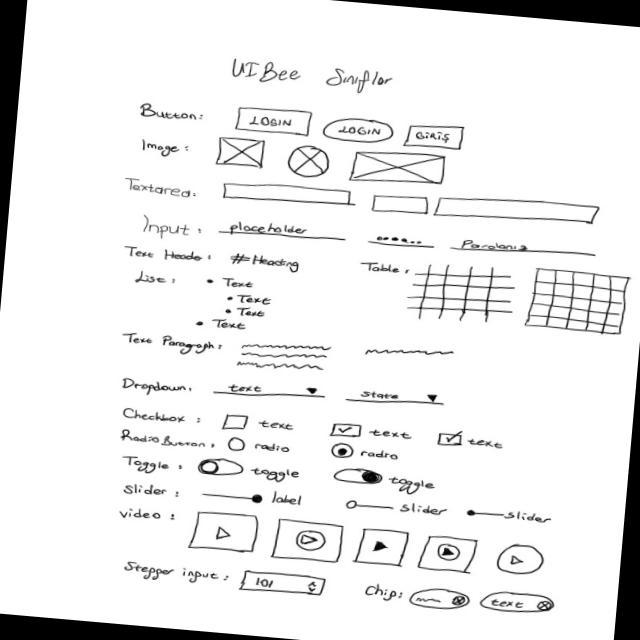 UIBee Sınıflar
Button: LOGIN LOGIN GİRİŞ
Image:
Textarea:
Input: placeholder •••••• Parolanız
Text Header: # Heading
Table:
List: • Text
• Text
• Text
• Text
Text Paragraph:
Dropdown: text state
Checkbox: text text text
Radio Button: radio radio
Toggle: toggle toggle
Slider: label slider slider
video:
Stepper input: 101
Chip: text